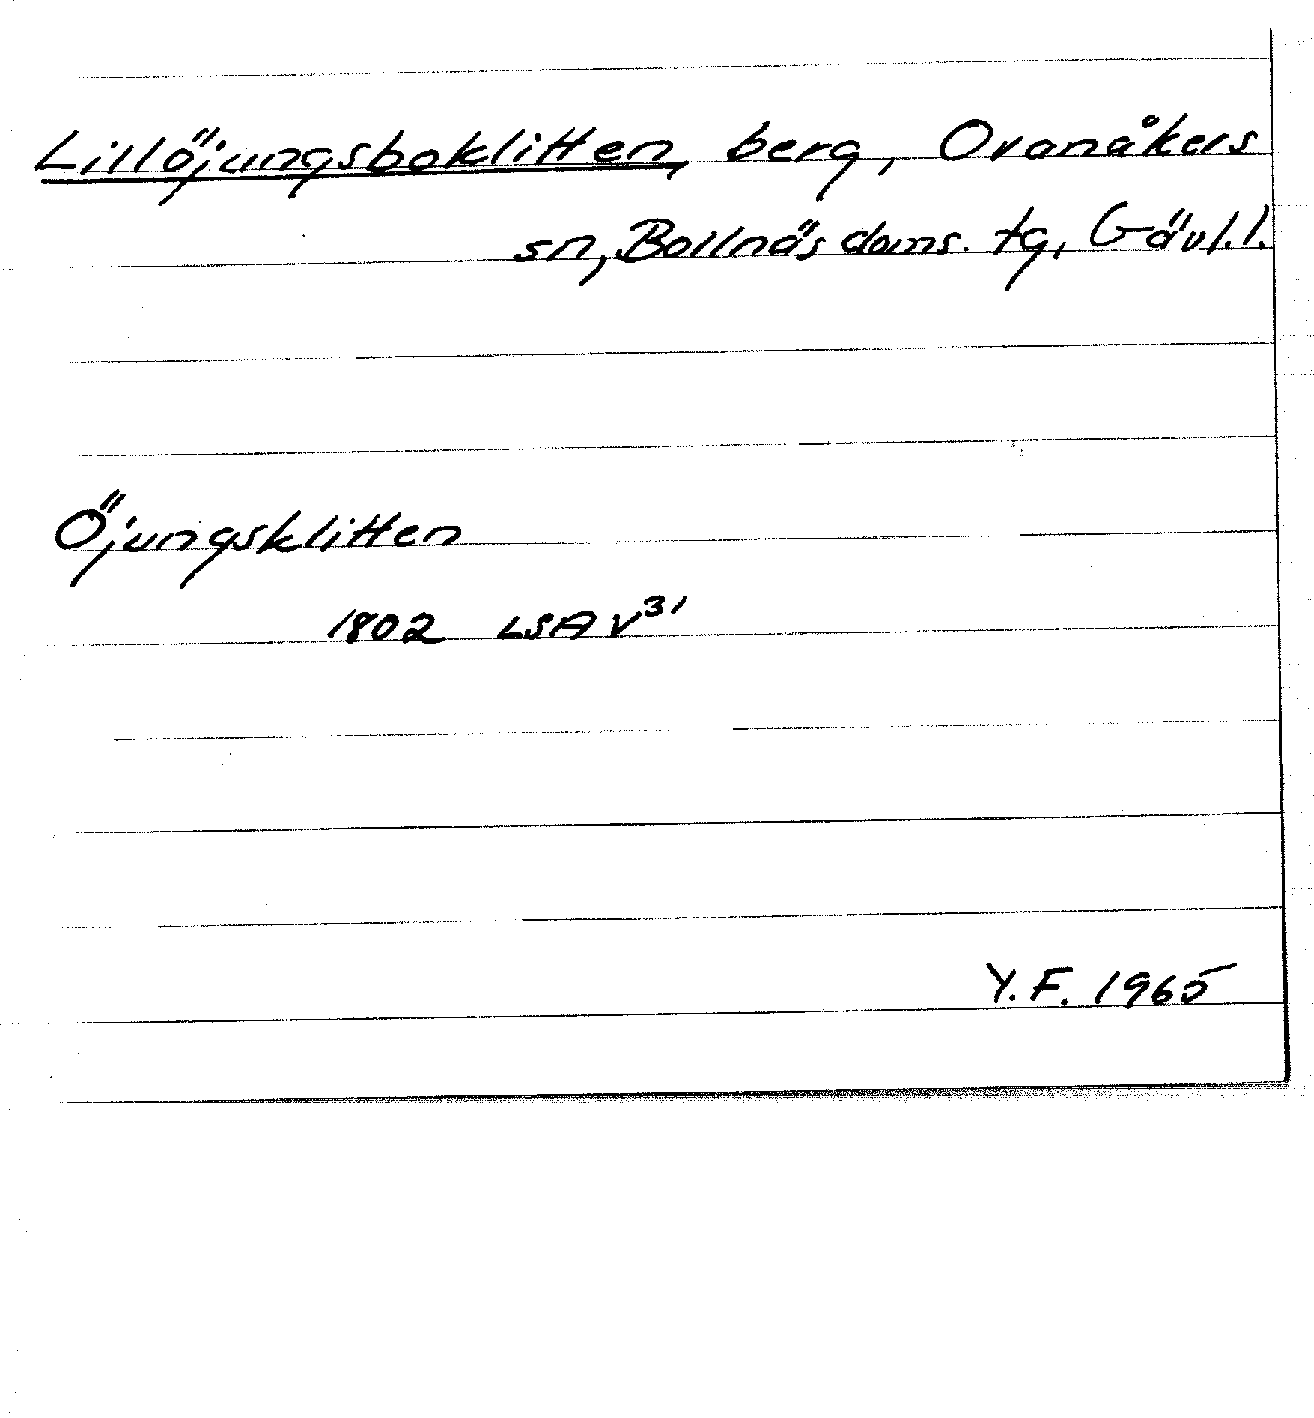 Lillöjungsboklitten, berg, Ovanåkers
sn, Bollnäs doms. tg, Gävl. l.
Öjungsklitten
1802 LSA V³¹
Y. F. 1965